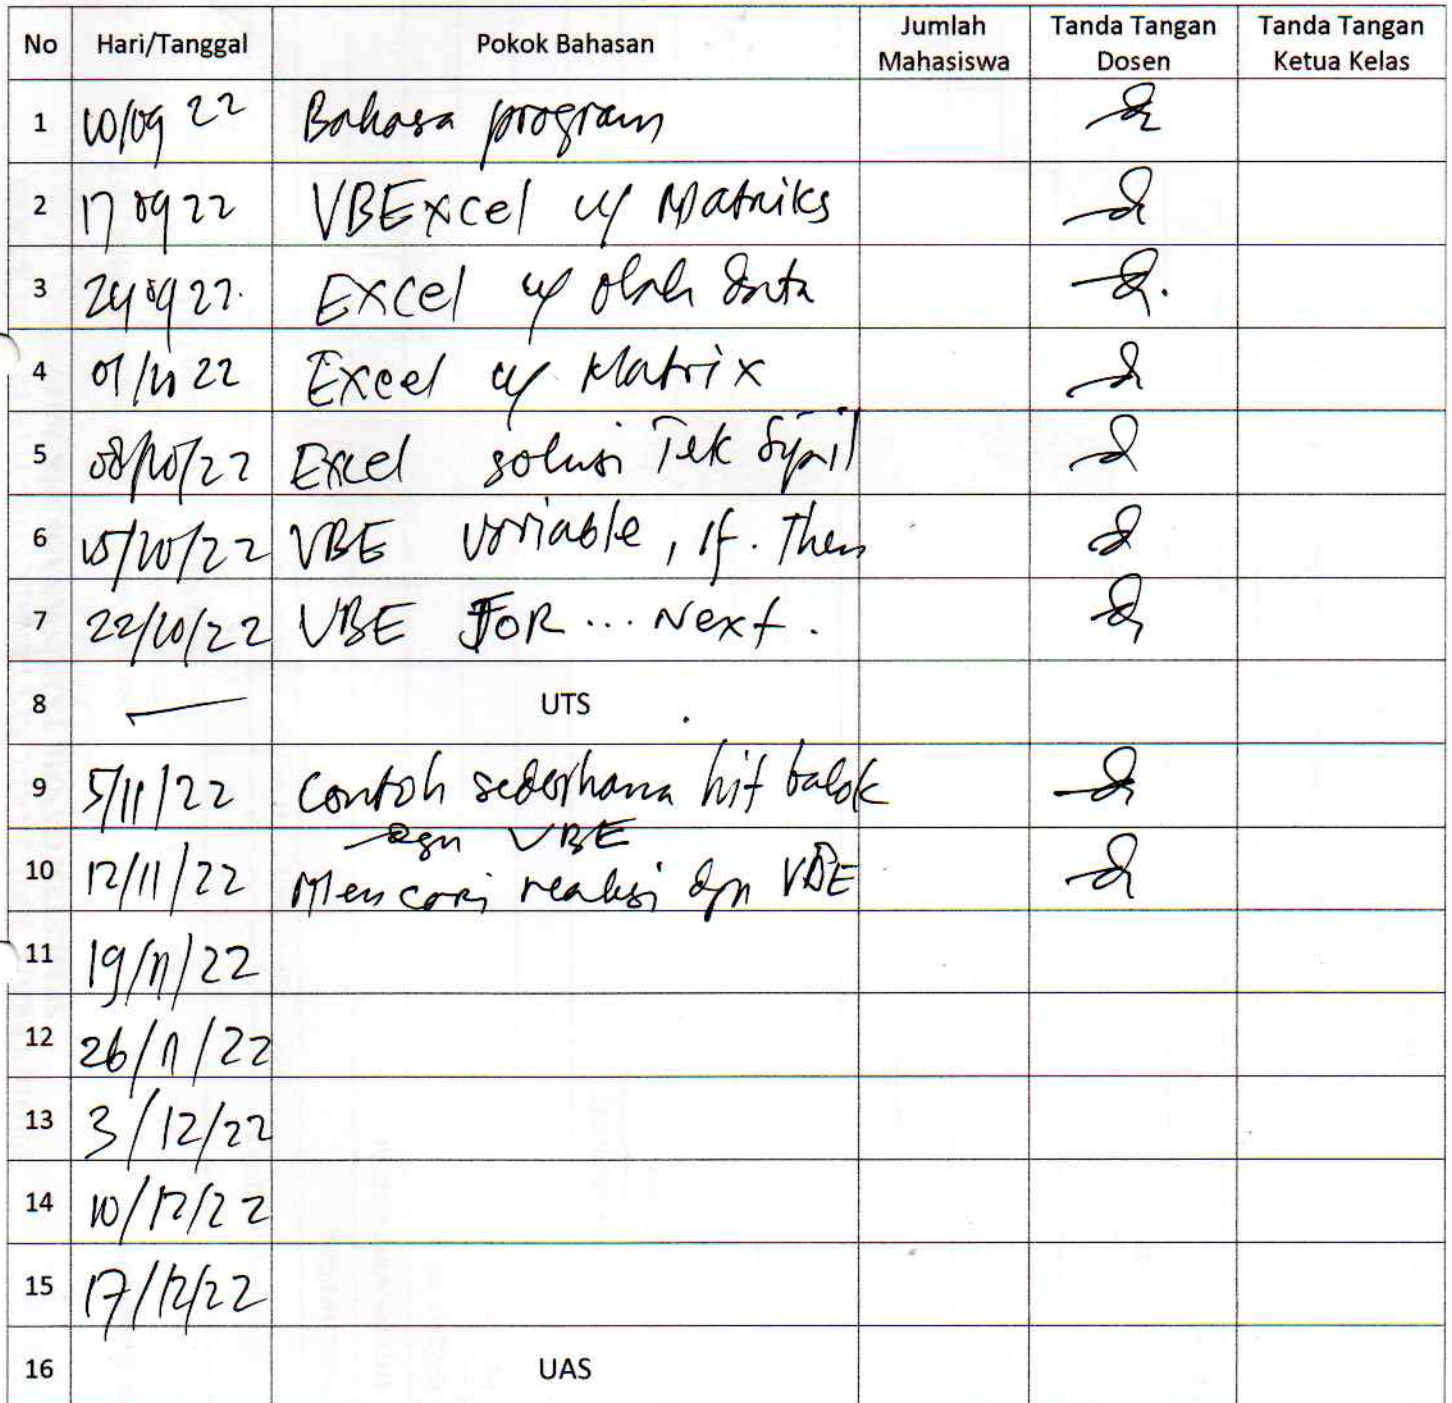 No Hari/Tanggal Pokok Bahasan Jumlah Mahasiswa Tanda Tangan Dosen Tanda Tangan Ketua Kelas
1 10/09 22 Bahasa program
2 17 09 22 VBExcel u/ Matriks
3 24 09 22. Excel u/ olah data
4 01/10 22 Excel u/ Matrix
5 08/10/22 Excel solusi Tek Sipil
6 15/10/22 VBE variable, If. Then
7 22/10/22 VBE FOR... Next.
8 — UTS
9 5/11/22 Contoh sederhana hit balok
dgn VBE
10 12/11/22 Mencari reaksi dgn VBE
11 19/11/22
12 26/11/22
13 3/12/22
14 10/12/22
15 17/12/22
16 UAS